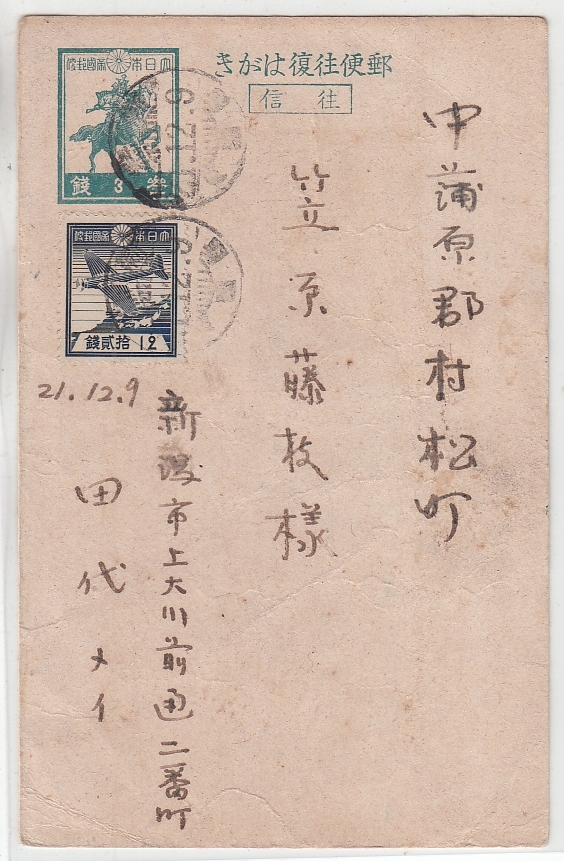 郵便往復はがき
往信
大日本帝國郵便
参 3 銭
大日本帝國郵便
12 拾貳銭
中蒲原郡村松町
笠原藤枝様
21.12.9
新潟市上大川前通二番町
田代メイ